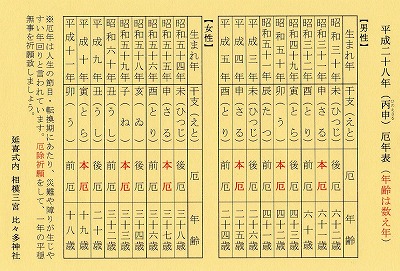 平成二十八年(丙申)厄年表(年齢は数え年)
【男性】
生まれ年 干支(えと) 厄 年齢
昭和三十年 未(ひつじ) 後厄 六十二歳
昭和三十一年 申(さる) 本厄 六十一歳
昭和三十二年 酉(とり) 前厄 六十歳
昭和四十九年 寅(とら) 後厄 四十三歳
昭和五十年 卯(う) 本厄 四十二歳
昭和五十一年 辰(たつ) 前厄 四十一歳
平成三年 未(ひつじ) 後厄 二十六歳
平成四年 申(さる) 本厄 二十五歳
平成五年 酉(とり) 前厄 二十四歳
【女性】
生まれ年 干支(えと) 厄 年齢
昭和五十四年 未(ひつじ) 後厄 三十八歳
昭和五十五年 申(さる) 本厄 三十七歳
昭和五十六年 酉(とり) 前厄 三十六歳
昭和五十八年 亥(ゐ) 後厄 三十四歳
昭和五十九年 子(ね) 本厄 三十三歳
昭和六十年 丑(うし) 前厄 三十二歳
平成九年 丑(うし) 後厄 二十歳
平成十年 寅(とら) 本厄 十九歳
平成十一年 卯(う) 前厄 十八歳
※厄年は人生の節目・転換期にあたり、災難や障りが生じや
すい年回りと言われています。厄除祈願をして、一年の平穏
無事を祈願致しましょう。
延喜式内 相模三宮 比々多神社